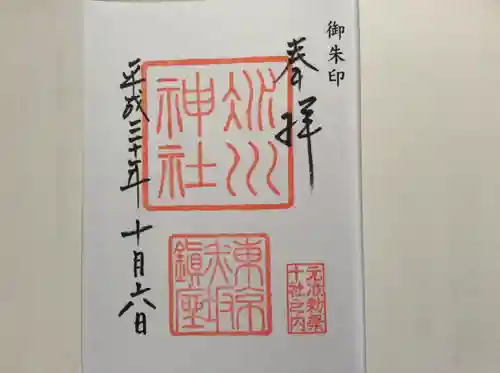 御朱印
奉拝
氷川
神社
東京
赤坂
鎮座
元准勅祭
十社之内
平成三十年 十月六日